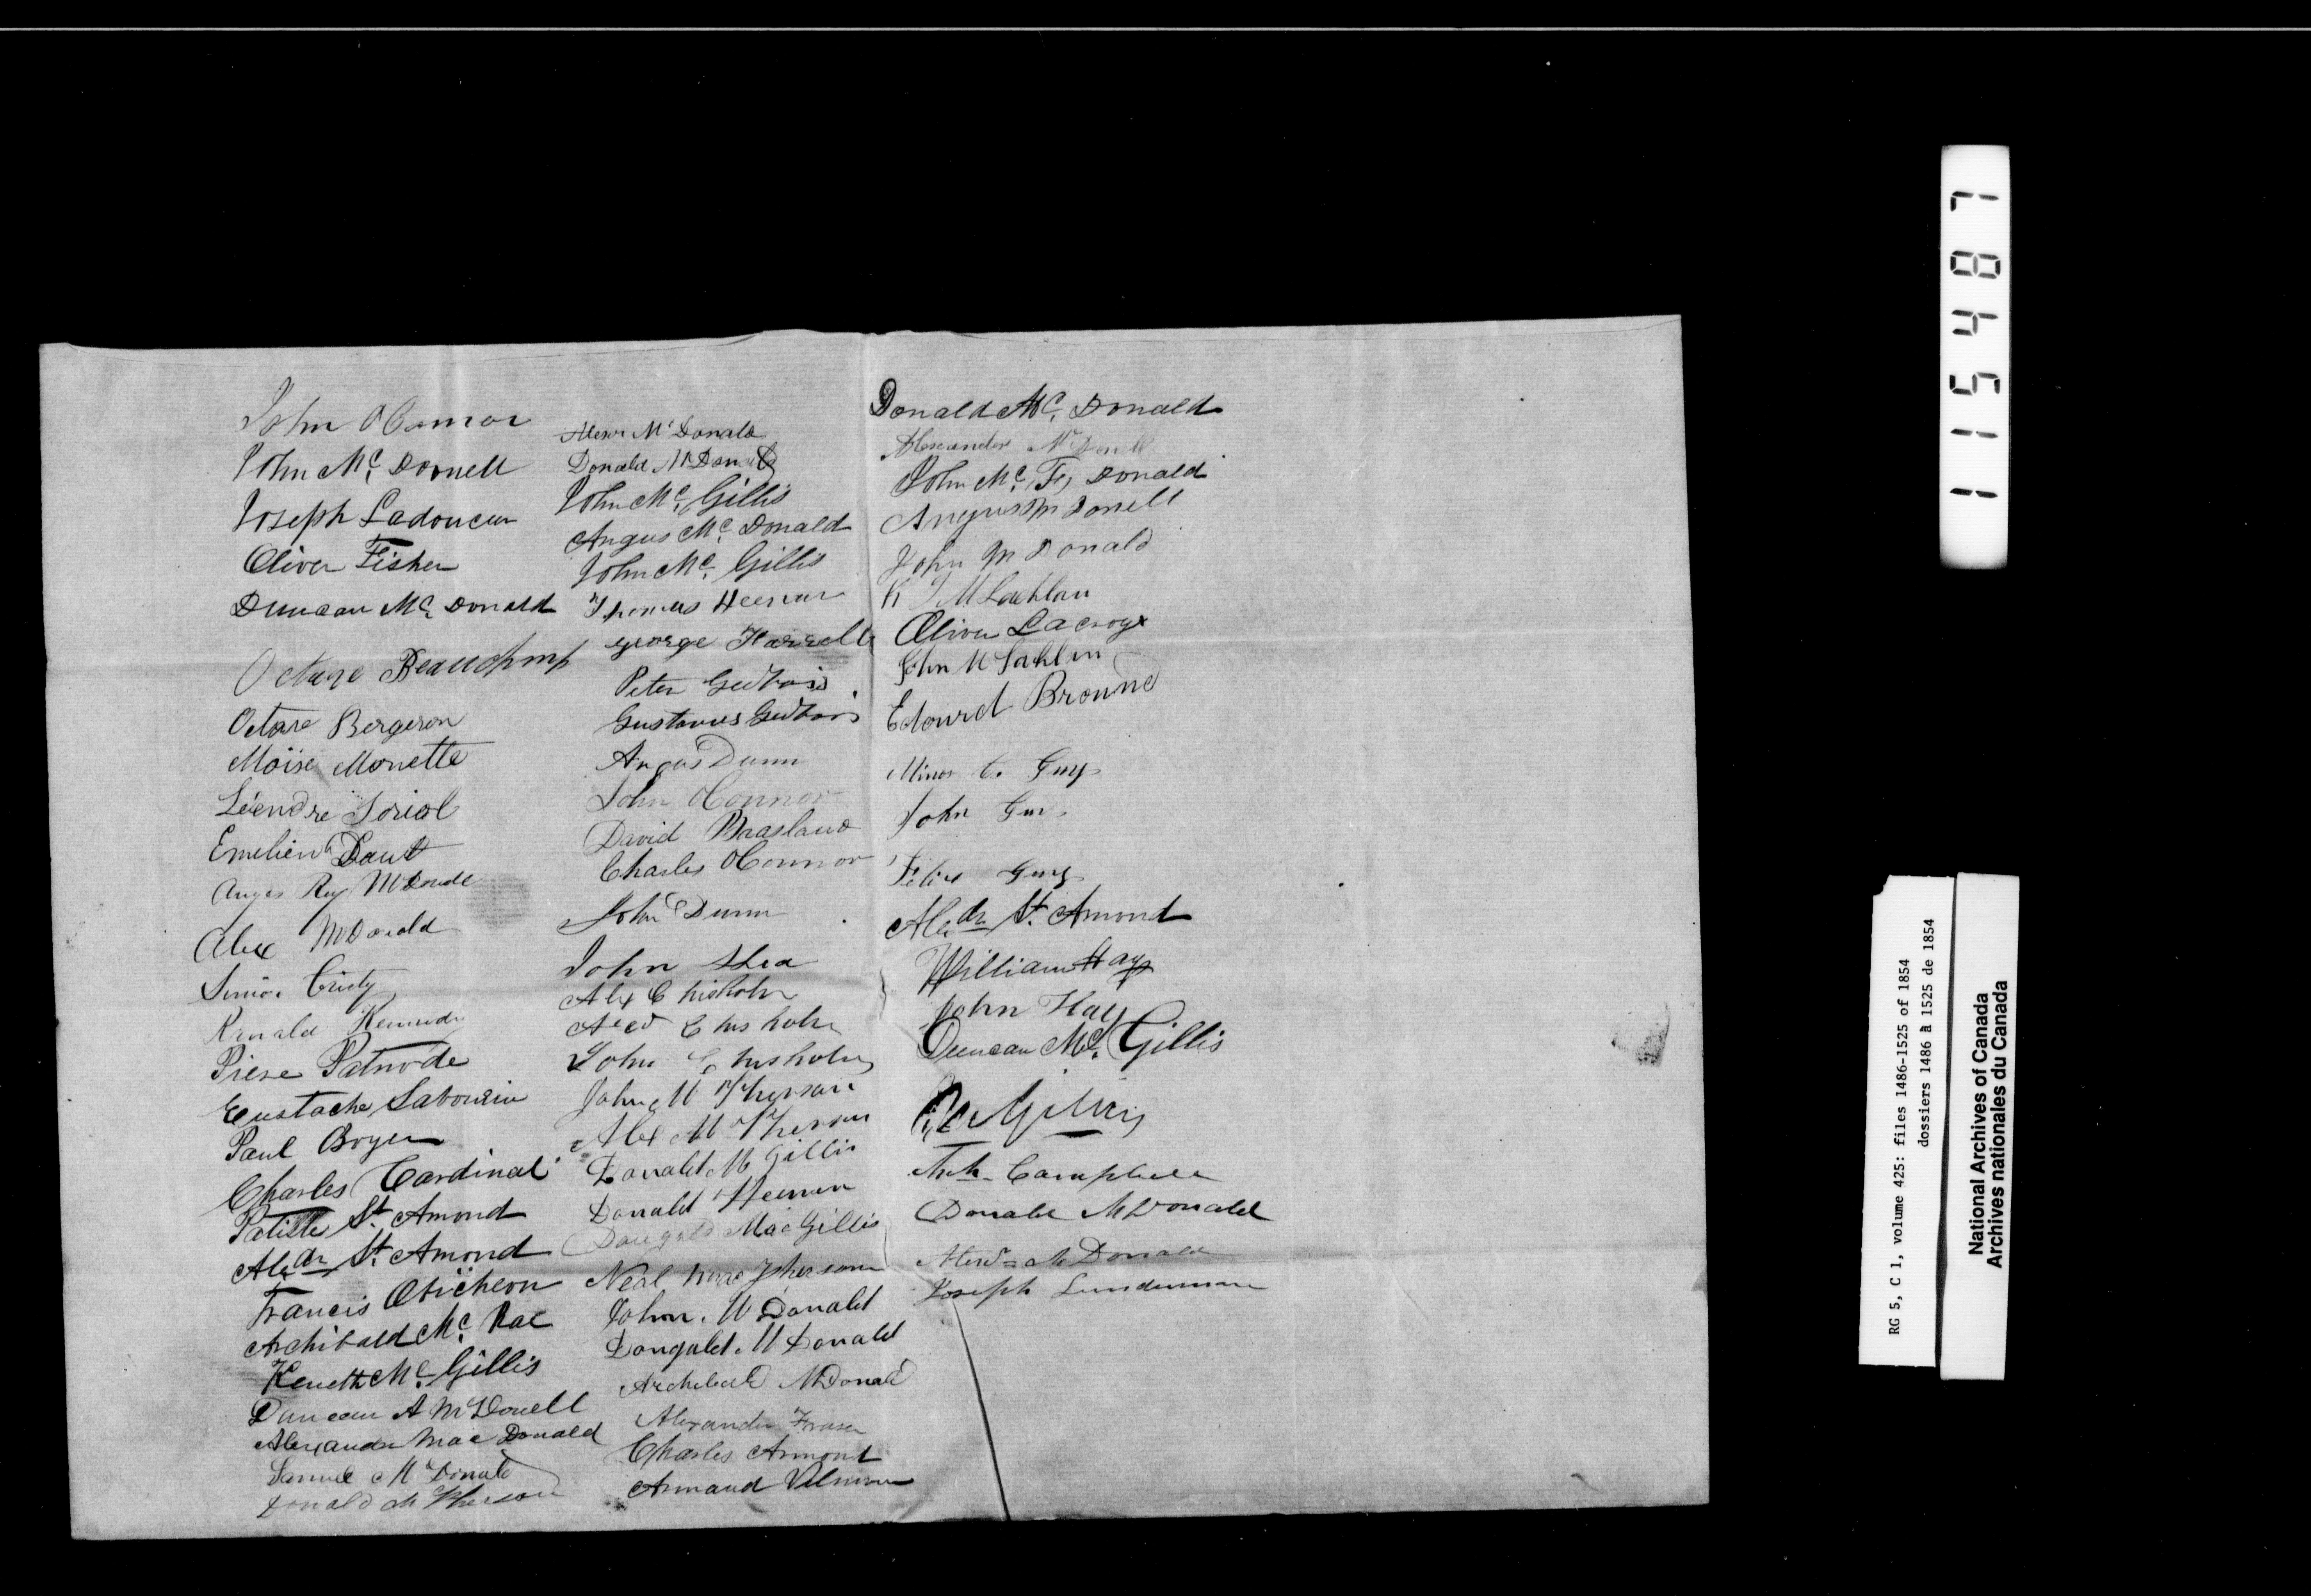 John OConnor
John Mc. Donnell
Joseph Ladouceur
Oliver Fisher
Duncan Mc. Donald
Octave Beauchmp
Octave Bergeron
Moïse Monette
Léendre Soriol
Emelien Daut
Angus Roy McDonde
Alex McDonald
Simon Cristy
Ranald Kennedy
Piere Patnode
Eustache Sabourin
Paul Boyer
Charles Cardinal
Patiste St. Amond
Alexdr St. Amond
Francis
Archibald Mc. Rae
Keneth Mc. Gillis
Duncan A McDonell
Alexander Mac Donald
Samuel McDonald
Donald McPherson
Alexr McDonald
Donald McDonald
John Mc. Gillis
Angus Mc. Donald
John Mc. Gillis
Thomas Heenan
george Harrell
Peter
Gustavus
Angus Dunn
John OConnor
David
Charles OConnor
John Dunn
John Shea
Alex Chisholm
Alexr Chisholm
John Chisholm
John McPherson
Alex McPherson
Donald Mc Gillis
Donald Heenan
Dougald MacGillis
Neal MacPherson
John. Mc Donald
Dongald. Mc Donald
Archibald McDonald
Alexander Fraser
Charles Armont
Armand
Donald Mc. Donald
Alexander McDonell
John Mc. Donald
Angus McDonell
John McDonald
McLachlan
Oliver Lacroyx
John McLachlan
Edourd Bronne
Minor C. Guy
John Guy
Felix Guy
Alexdr St. Amond
William Hay
John Hay
Duncan Mc. Gillis
Arch. Campbell
Donald McDonald
Alexdr McDonald
Joseph Lunderman
115487
RG 5, C 1, volume 425: files 1486-1525 of 1854
dossiers 1486 à 1525 de 1854
National Archives of Canada
Archives nationales du Canada